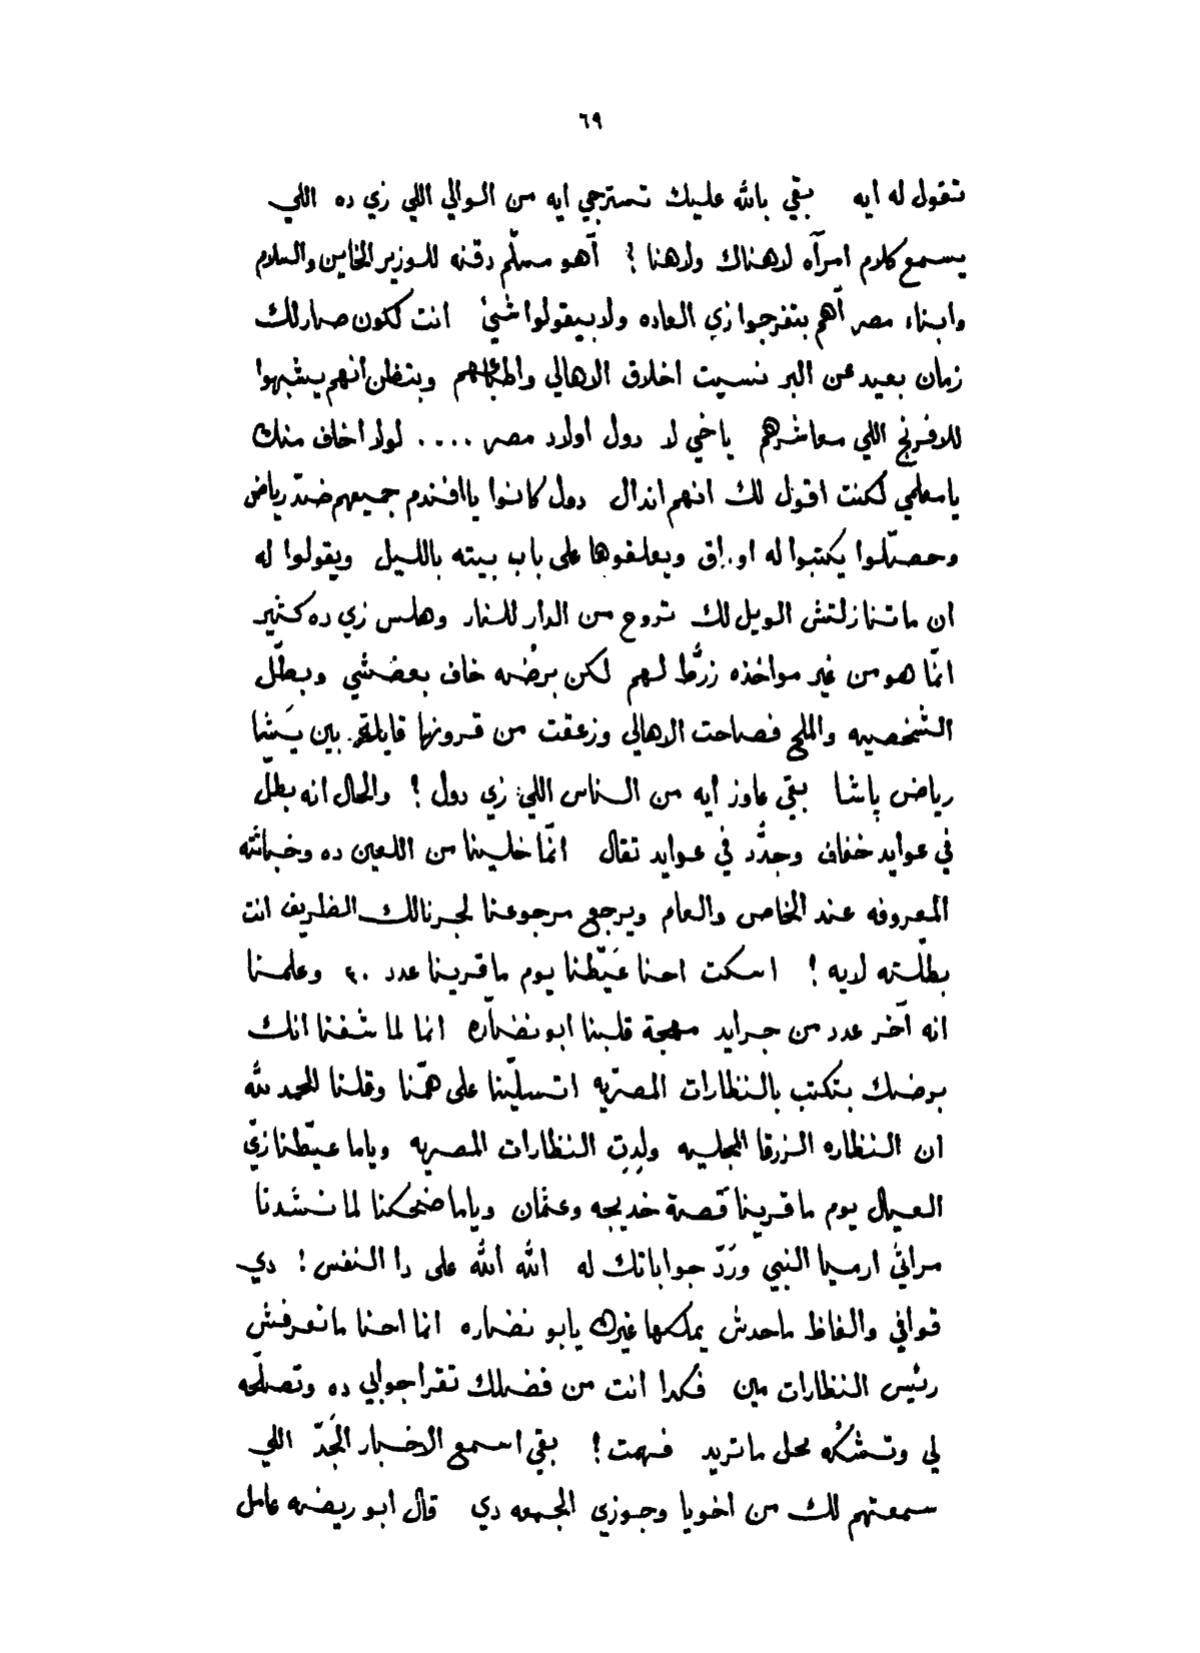 ٦٩
تقول له ايه بقي بالله عليك تسترجي ايه من الوالي اللي زي ده اللي
يسمع كلام امرآه لاهناك ولاهنا ؟ آهو مسلّم دقنه للوزير الخاين والسلام
وابناء مصر آهم بتفرجوا زي العاده ولا بيقولوا شيئ انت لكون صار لك
زمان بعيد عن البر نسيت اخلاق الاهالي وبتظن انهم يشبهوا
للافرنج اللي معاشرهم ياخي لا دول اولاد مصر .... لولا اخاف منك
يا معلمي لكنت اقول لك انهم اندال دول كانوا يا افندم جميعهم ضدّ رياض
وحصّلوا يكتبوا له اوراق ويعلقوها على باب بيته بالليل ويقولوا له
ان ماتنازلتش الويل لك تروح من الدار للنار وهلس زي ده كثير
انّما هو من غير مواخذه زرُّط لهم لكن برضه خاف بعضشي وبطّل
الشخصيه والملح فصاحت الاهالي وزعقت من قرونها قايلة بين يَشا
رياض پاشا بقي عاوز ايه من الناس اللي زي دول ! والحال انه بطلّ
في عوايد خفاف وجدُّد في عوايد تقال انّما خلينا من اللعين ده وخباثته
المعروفه عند الخاص والعام ويرجع مرجوعنا لجرنالك الظريف انت
بطلّته لايه ! اسكت احنا عَيّطنا يوم ماقرينا عدد ٣٠ وعلمنا
انه آخر عدد من جرايد مهجة قلبنا ابو نضاره انما لما شفنا انك
برضك بتكتب بالنظارات المصريّه اتسلّينا على همّنا وقلنا الحمد لله
ان النظاره الزرقا المجليه ولدت النظارات المصريه وياما عيّطنا زيّ
العيال يوم ماقرينا قصة خديجه وعثمان وياما ضحكنا لما نشدنا
مراثي ارميا النبي ورَدّ جواباتك له الله الله على دا النفس ! دي
قوافي والفاظ ماحدش يملكها غيرك يابو نضاره انما احنا مانعرفش
رئيس النظارات مين فكدا انت من فضلك تقرا جوابي ده وتصلّحه
لي وتشكُله محلى ماتريد فهمت ! بقي اسمع الاخبار الجُدّ اللي
سمعتهم لك من اخويا وجوزي الجمعه دي قال ابو ريضه عامل